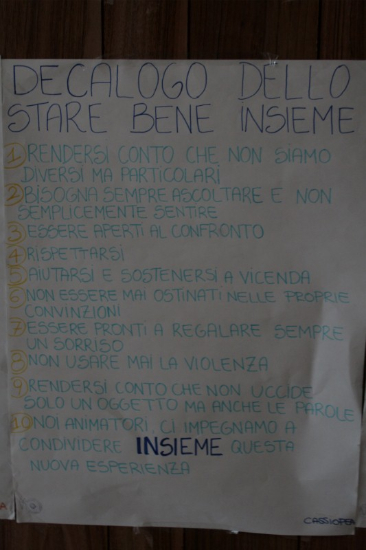 DECALOGO DELLO
STARE BENE INSIEME
1 RENDERSI CONTO CHE NON SIAMO
DIVERSI MA PARTICOLARI
2 BISOGNA SEMPRE ASCOLTARE E NON
SEMPLICEMENTE SENTIRE
3 ESSERE APERTI AL CONFRONTO
4 RISPETTARSI
5 AIUTARSI E SOSTENERSI A VICENDA
6 NON ESSERE MAI OSTINATI NELLE PROPRIE
CONVINZIONI
7 ESSERE PRONTI A REGALARE SEMPRE
UN SORRISO
8 NON USARE MAI LA VIOLENZA
9 RENDERSI CONTO CHE NON UCCIDE
SOLO UN OGGETTO MA ANCHE LE PAROLE
10 NOI ANIMATORI CI IMPEGNAMO A
CONDIVIDERE INSIEME QUESTA
NUOVA ESPERIENZA